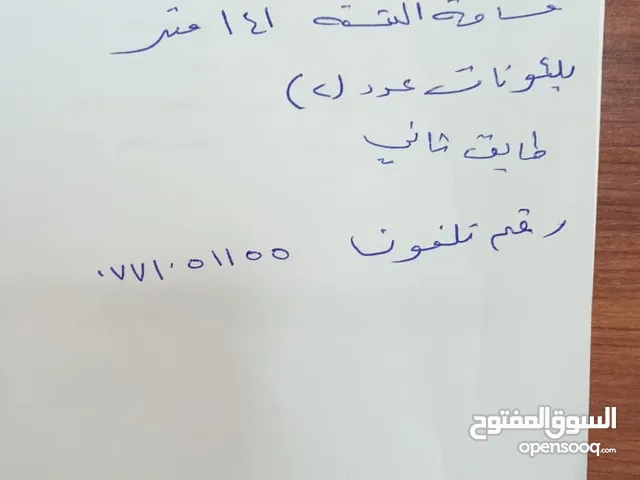 مساحة الشقة ١٤١ متر
بلكونات عدد (٢)
طابق ثاني
رقم تلفون ٠٧٧١٠٥١١٥٥
السوق المفتوح
opensooq.com